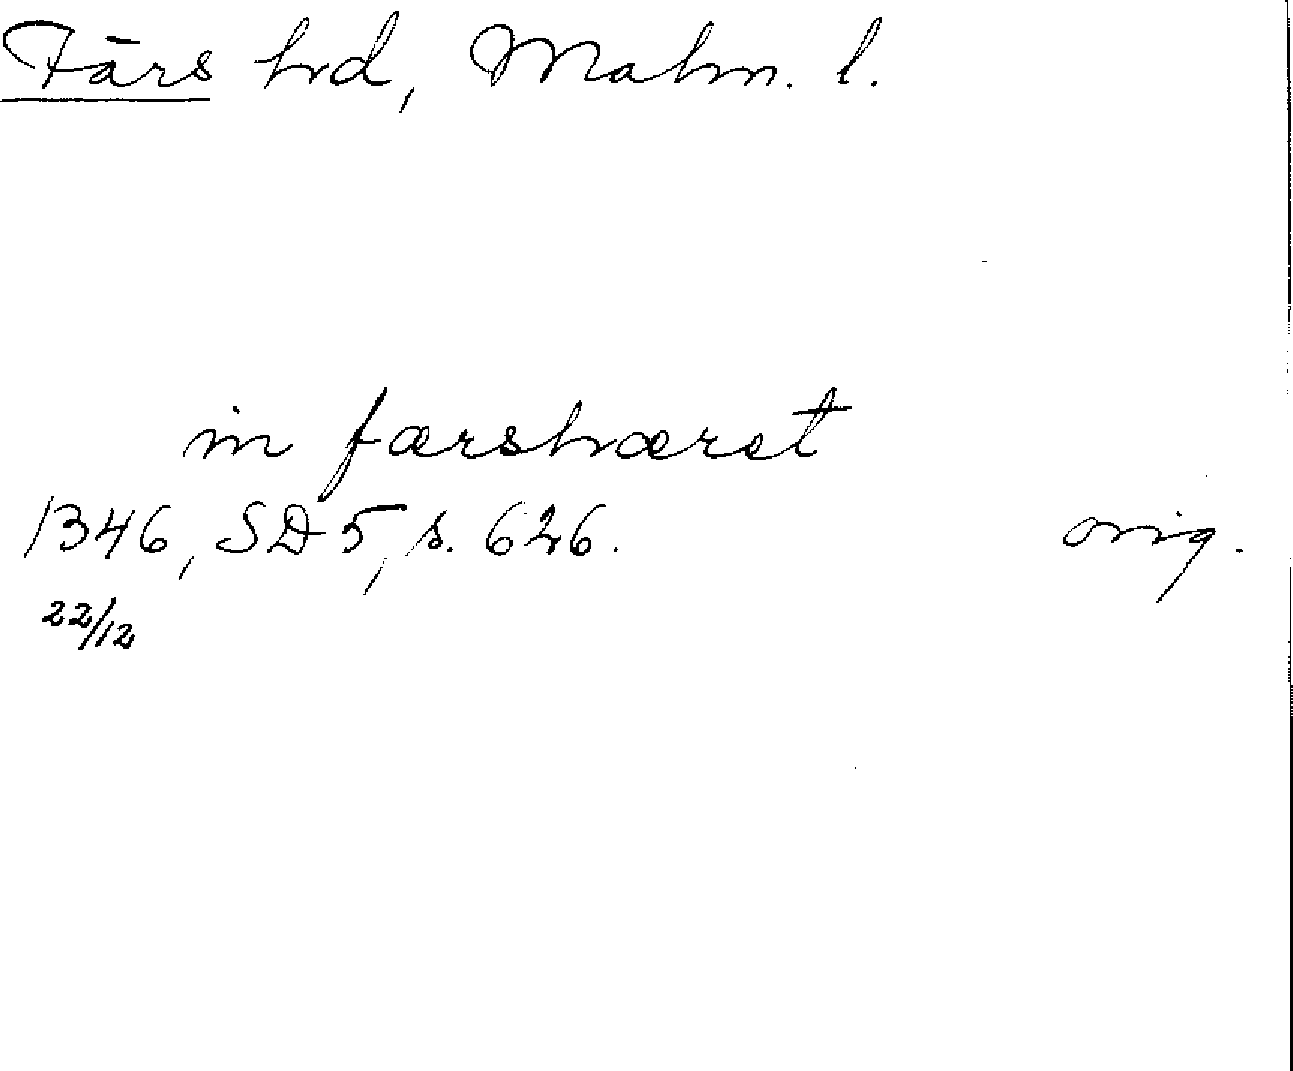 Färs hrd, Malm. l.
in færshæret
1346, SD 5, s. 626. orig.
22/12